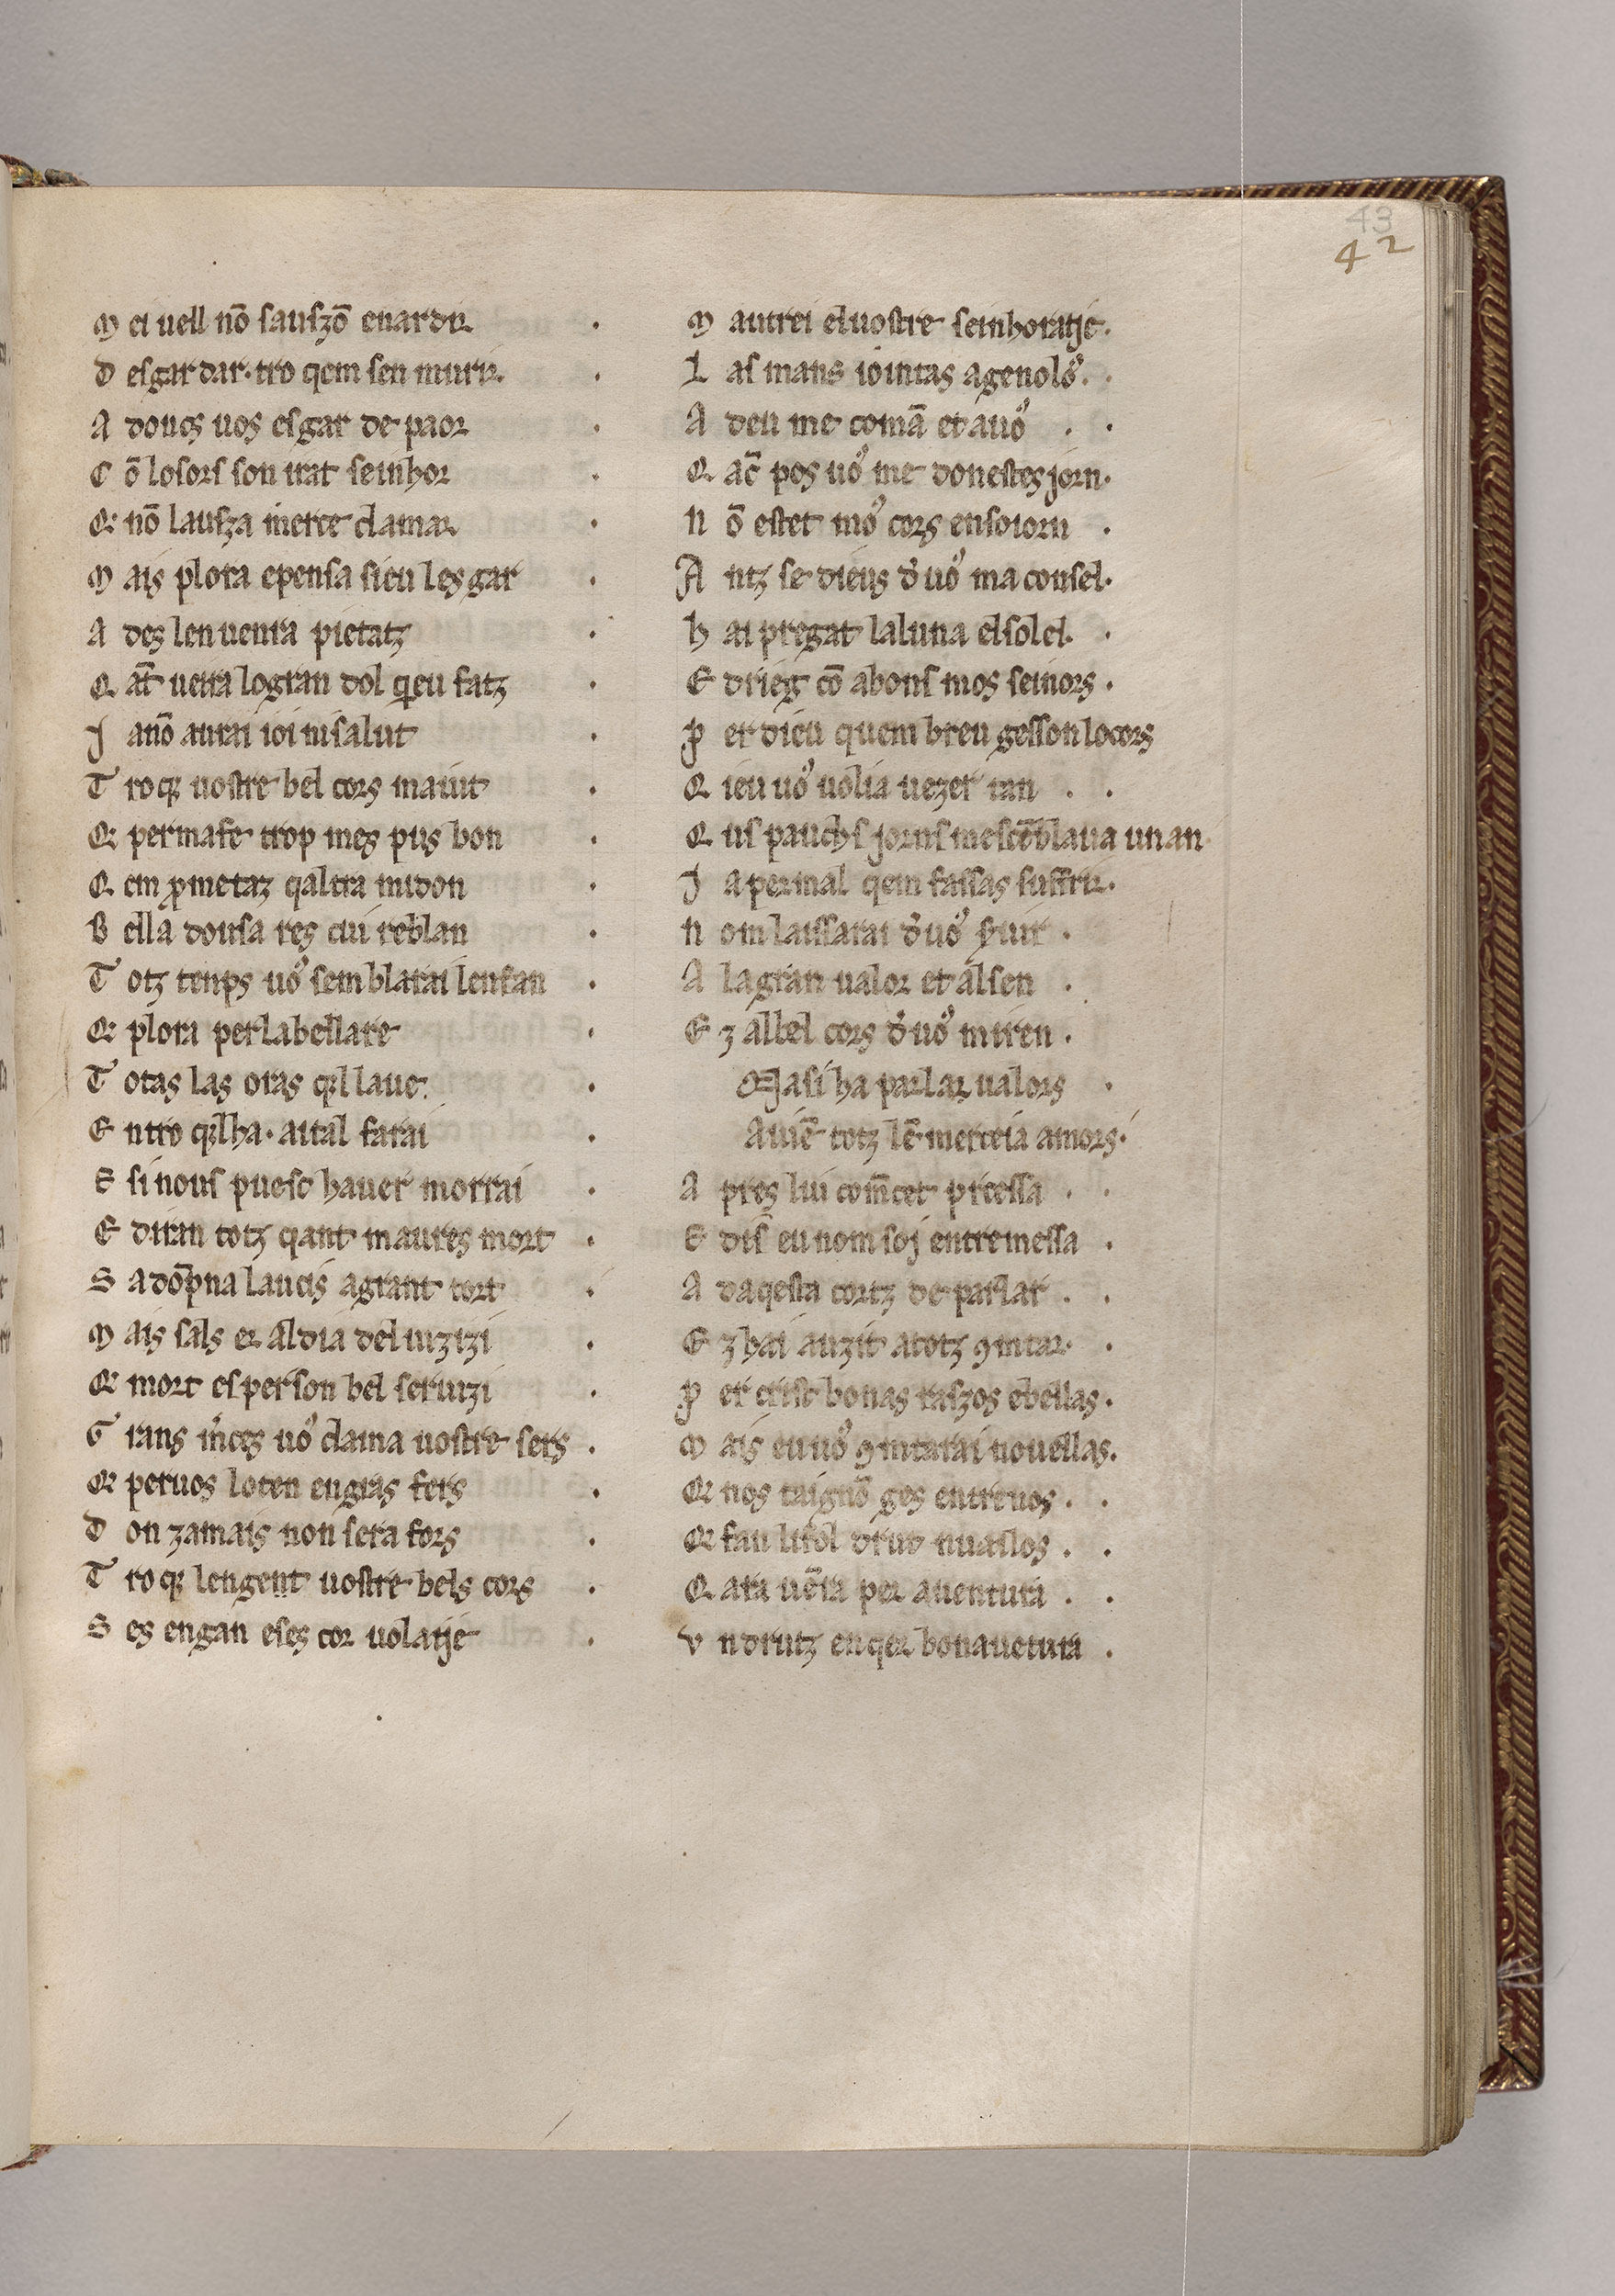 43
42
M ei uell nō sauszō enardir
D esgardar. tro qem sen murir.
A doucs uos esgar de paor
C ō losors son irat seinhor
Q nō lausza merce clamar
M ais plora epensa sieu lesgar
A des len uenra pietatz
Q ar uerra logran dol qeu fatz
J anō aurai ioi nisalut
T roqe uostre bel cors maiut
Q permafe trop mes pus bon
Q em ꝓmetaz qaltra midon
B ella dousa res cui reblan
T otz temps uos semblarai lenfan
Q plora perlabellare
T otas las oras qel laue.
E ntro qelha. aital farai
E si nous puosc hauer morrai
E diran totz qant maures mort
S adōpna laucis agrant tort
M ais sals er al dia del iuzizi
Q mort es per son bel seruizi
G rans m̄ces uos clama uostre sers
Q peruos loten engras fers
D on zamais non sera fors
T ro qe lengent uostre bels cors
S es engan eses cor uolatje
M autrei eluostre seinhoratje.
L as mans iointas agenols.
A deu me comā et auos
Q ac pos uos me donestes jorn.
N ō estet mos cors ensoiorn
A ntz se dieus d'uos ma consel.
H ai pregat laluna elsolel.
E drieg cō abons mos seinors.
P er dieu quem breu gesson locors
Q ieu uos uolia uezer tan
Q us pauchs jorns mescēblaua un an
J apermal qem fassas suffrir.
N om laissarai d'uos seruir.
A lagran ualor et alsen
E z albel cors d'uos miren.
Ja si ha parlar ualors
A uiē totz lē merceia amors.
A pres lui com̄cet p̄cessa
E dis eu nom soj entremessa
A daqesta cortz de parlar
E z hai auzit atotz ꝯntar
P er crist bonas raszos ebellas.
M ais eu uos ꝯntarai nouellas.
Q nos taignō ges entreuos.
Q fan lifol drut nuaslos.
Q ara uēra per auentura
V n drutz en qer bonauetura